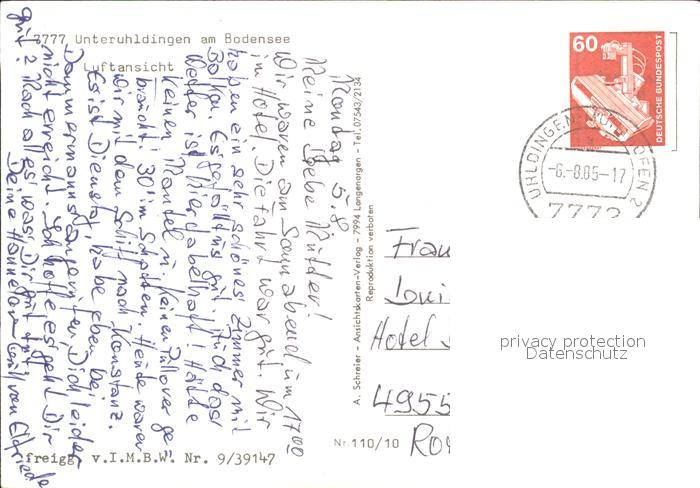 7777 Unteruhldingen am Bodensee
Luftansicht
Montag 5.8
Meine liebe Mutter!
Wir waren am Sonnabend um 17.00
im Hotel. Die Fahrt war gut. Wir
haben ein sehr schönes Zimmer mit
Balkon. Es gefällt uns gut. Auch das
Wetter ist hier fabelhaft! Hätte
keinen Mantel u. keinen Pullover ge-
braucht. 30° im Schatten. Heute waren
wir mit dem Schiff nach Konstanz.
Es ist Dienstag, habe eben bei
Dammermanns angerufen Dich leider
nicht erreicht. Ich hoffe es geht Dir
gut! Mach alles was Dir gut tut
Deine Hannelore Gruß von Elfriede
freigg. v.I.M.B.W. Nr. 9/39147
A. Schreier - Ansichtskarten-Verlag - 7994 Langenargen - Tel. 07543/2134
Reproduktion verboten
Nr. 110/10
60
DEUTSCHE BUNDESPOST
UHLDINGEN-MÜHLHOFEN 2
-6.-8.85-17
7772
Frau
Loui
Hotel
4955
privacy protection
Datenschutz